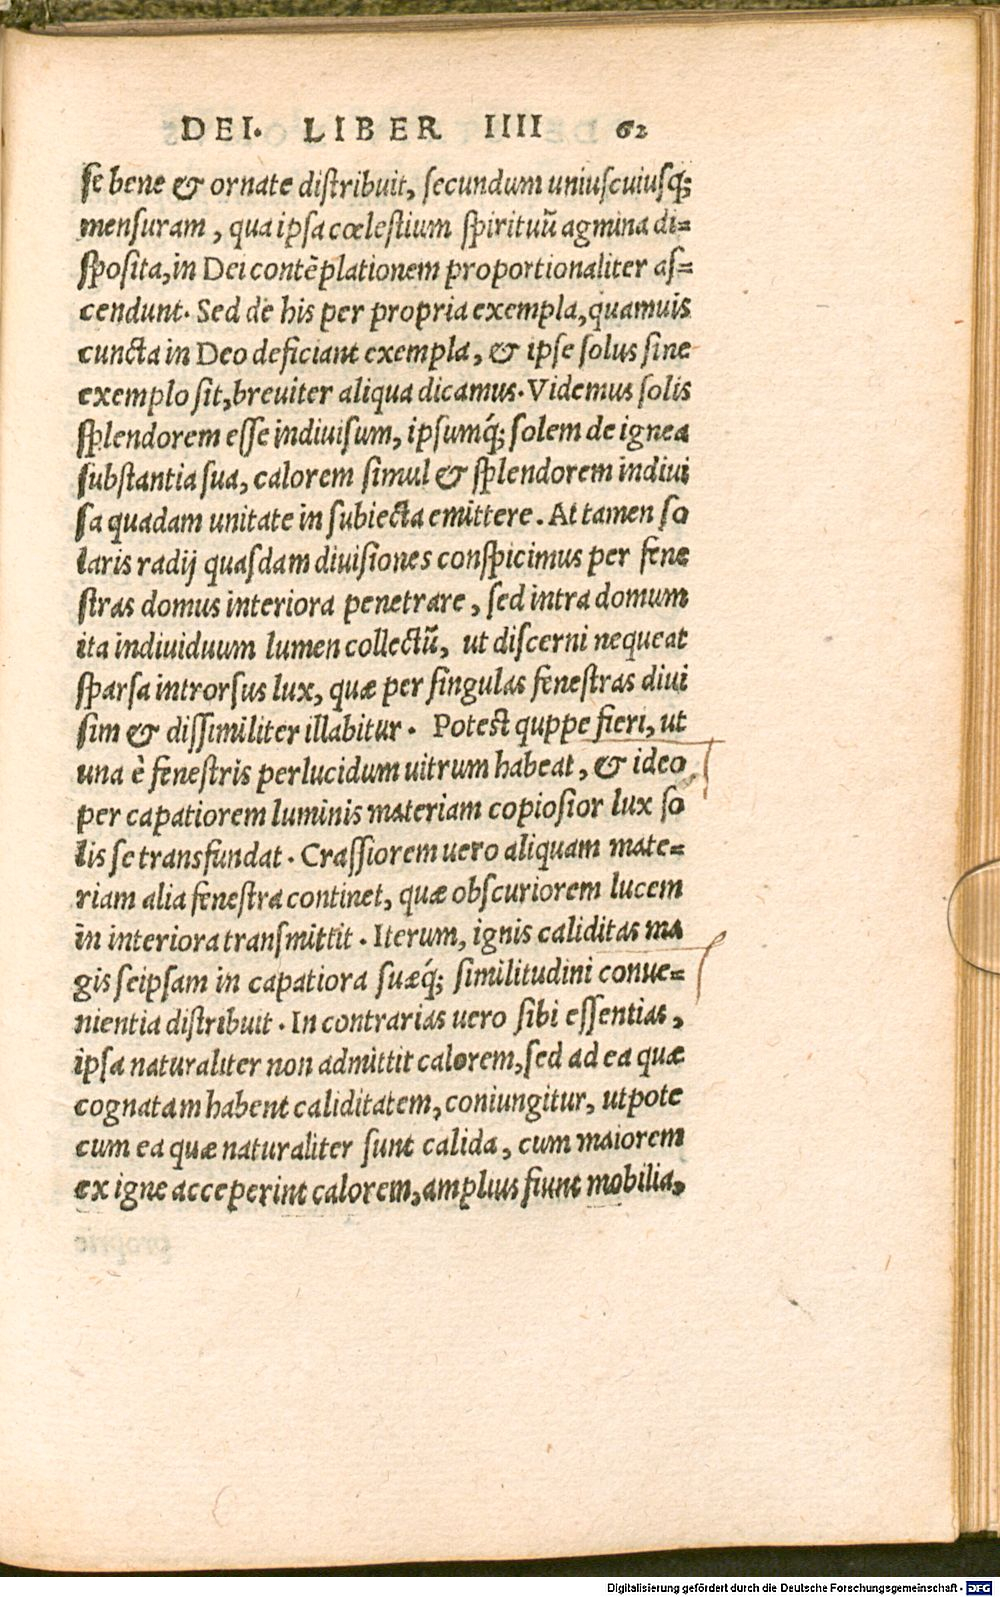 DEI. LIBER IIII 62
se bene & ornate distribuit, secundum uniuscuiusq́;
mensuram, qua ipsa cœlestium spirituũ agmina di=
sposita, in Dei contẽplationem proportionaliter as=
cendunt. Sed de his per propria exempla, quamuis
cuncta in Deo deficiant exempla, & ipse solus sine
exemplo sit, breuiter aliqua dicamus. Videmus solis
splendorem esse indiuisum, ipsumq́; solem de ignea
substantia sua, calorem simul & splendorem indiui
sa quadam unitate in subiecta emittere. At tamen so
laris radij quasdam diuisiones conspicimus per fene
stras domus interiora penetrare, sed intra domum
ita indiuiduum lumen collectũ, ut discerni nequeat
sparsa introrsus lux, quæ per singulas fenestras diui
sim & dissimiliter illabitur. Potest quppe fieri, ut
una è fenestris perlucidum uitrum habeat, & ideo
per capatiorem luminis materiam copiosior lux so
lis se transfundat. Crassiorem uero aliquam mate=
riam alia fenestra continet, quæ obscuriorem lucem
in interiora transmittit. Iterum, ignis caliditas ma
gis seipsam in capatiora suæq́; similitudini conue=
nientia distribuit. In contrarias uero sibi essentias,
ipsa naturaliter non admittit calorem, sed ad ea quæ
cognatam habent caliditatem, coniungitur, utpote
cum ea quæ naturaliter sunt calida, cum maiorem
ex igne acceperint calorem, amplius fiunt mobilia,
Digitalisierung gefördert durch die Deutsche Forschungsgemeinschaft - DFG